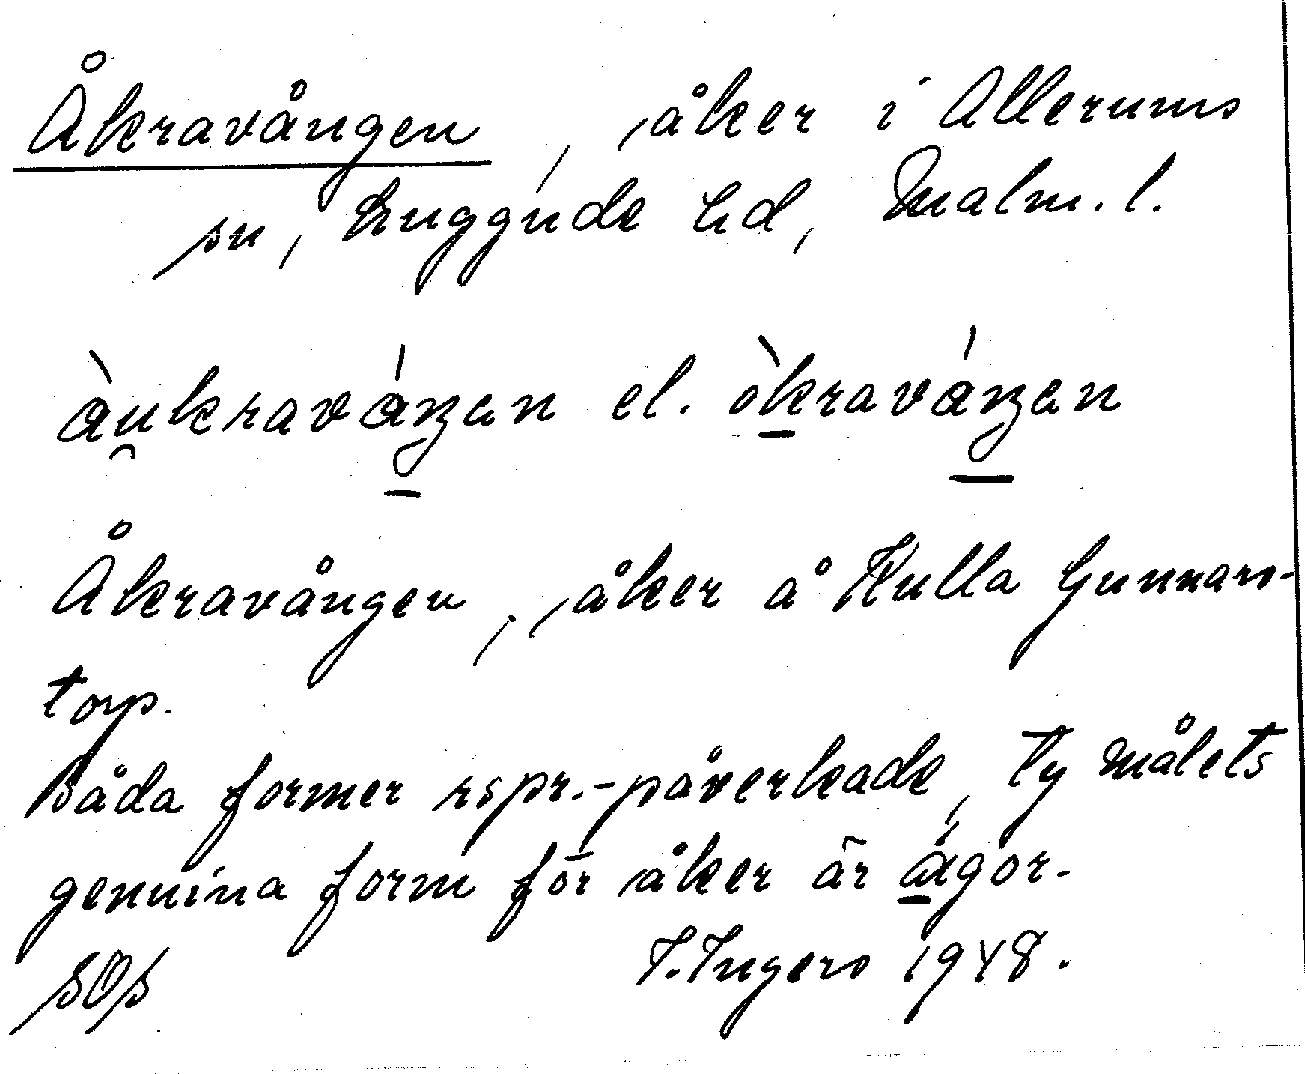 Åkravången, åker i Allerums
sn, Luggude hd, Malm. l.
àu̯kraváŋ̠en el. òk̠raváŋ̠en
Åkravången, åker å Kulla Gunnars-
torp.
Båda former rspr.-påverkade, ty målets
genuina form för åker är a̠gor.
SOS I. Ingers 1948.